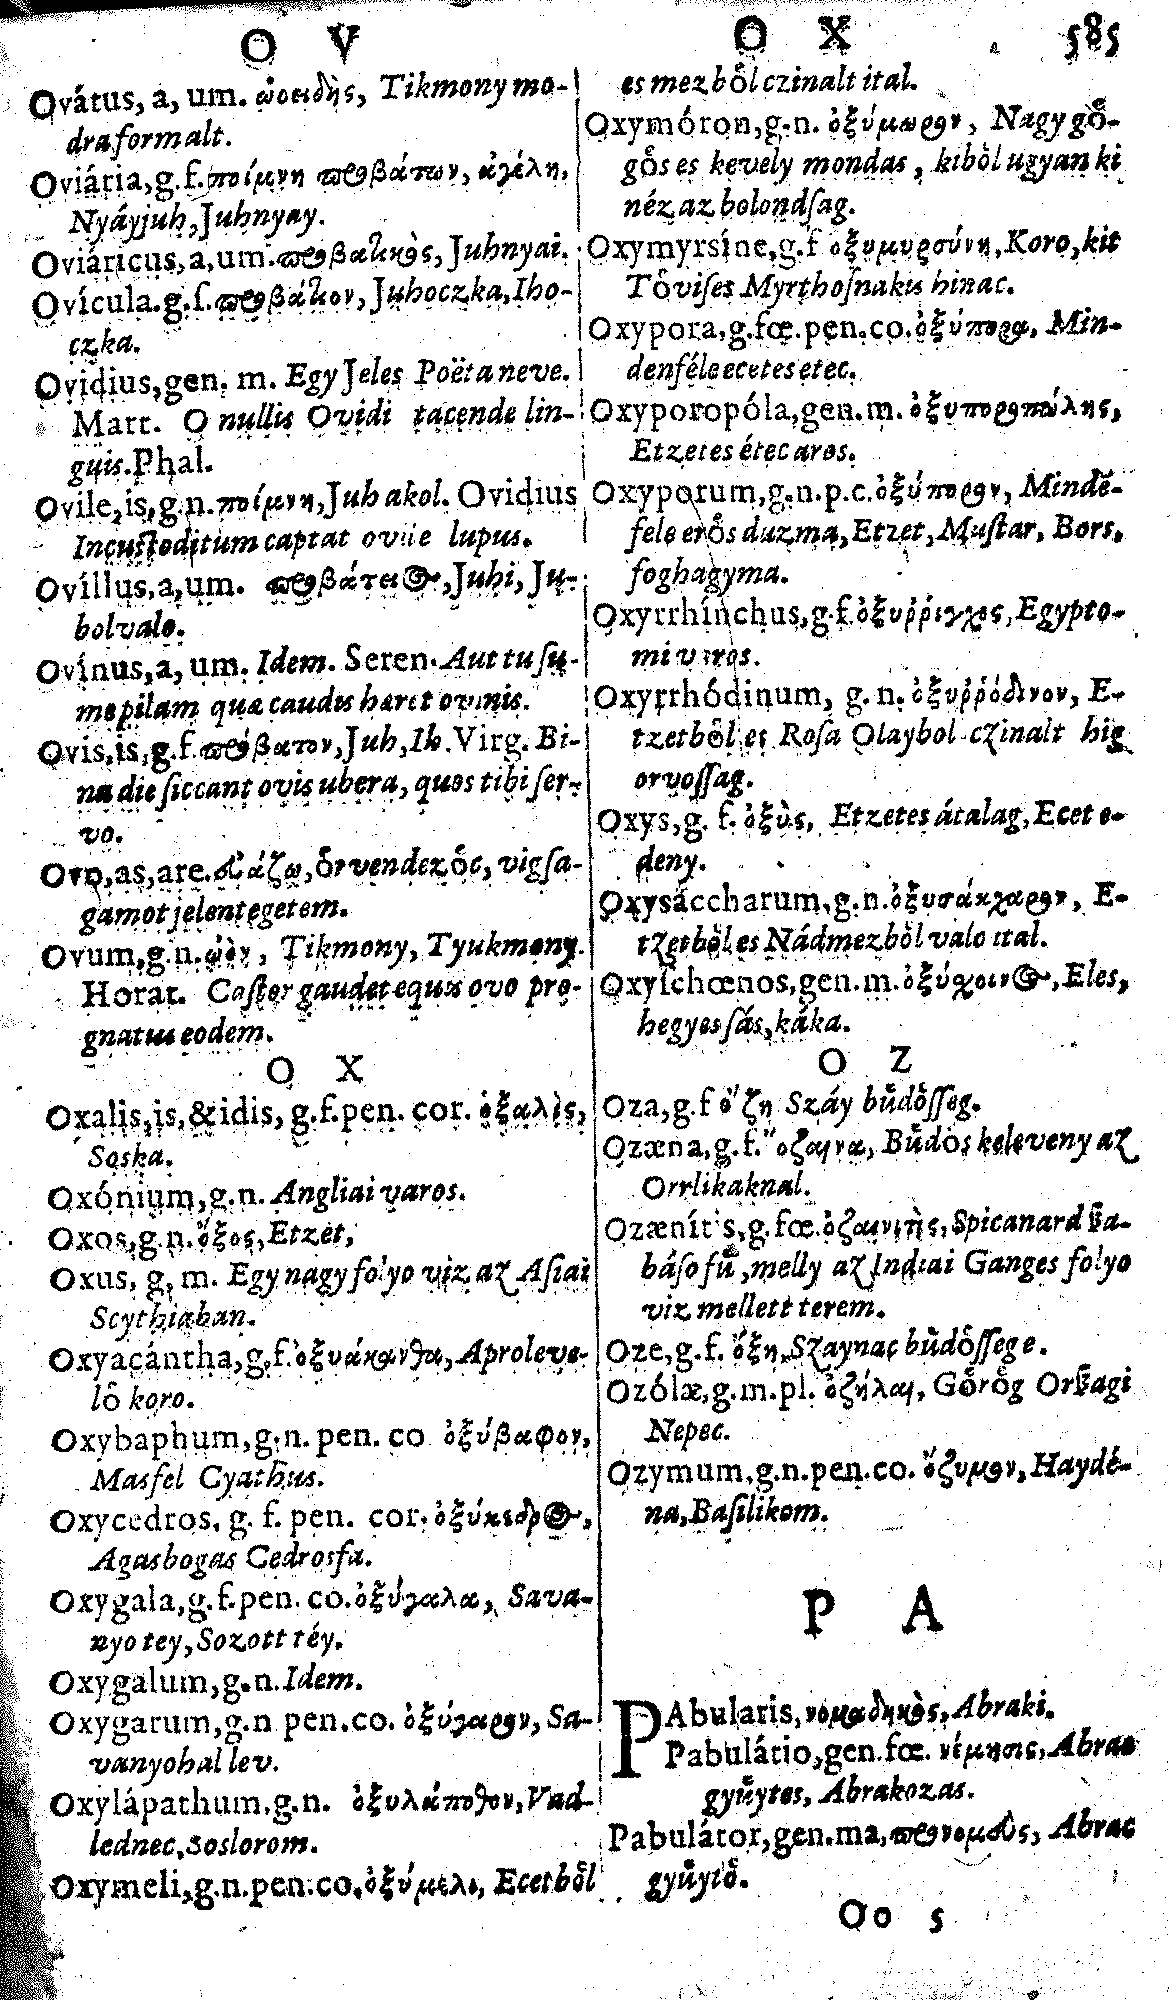 O V
Ovátus, a, um. ὠοειδὴς, Tikmony mo-
draformalt.
Oviária, g. f. ποίμνη προβάτων, ἀγέλη,
Nyáyjuh, Juhnyay.
Oviáricus, a, um. προβατικὸς, Juhnyai.
Ovícula. g. f. προβάτιον, Juhoczka, Iho-
czka.
Ovidius, gen. m. Egy Jeles Poëta neve.
Mart. O nullis Ovidi tacende lin-
guis. Phal.
Ovile, is, g. n. ποίμνη, Juh akol. Ovidius
Incustoditum captat ovile lupus.
Ovíllus, a, um. προβάτειος, Juhi, Ju-
bolvalo.
Ovínus, a, um. Idem. Seren. Aut tu su-
me pilam quæ caudis hæret ovinis.
Ovis, is, g. f. πρόβατον, Juh, Ih. Virg. Bi-
na die siccant ovis ubera, quos tibi ser-
vo.
Ovo, as, are. ἀλάζω, ỏrvendezỏc, vigsa-
gamot jelentegetem.
Ovum, g. n. ὠὸν, Tikmony, Tyukmony.
Horat. Castor gaudet equis ovo pro-
gnatus eodem.
O X
Oxalis, is, & idis, g. f. pen. cor. ὀξαλὶς,
Soska.
Oxónium, g. n. Angliai varos.
Oxos, g. n. ὄξος, Etzet,
Oxus, g, m. Egy nagy folyo viz az Asiai
Scythiaban.
Oxyacántha, g, f. ὀξυάκανθα, Aproleve-
lô koro.
Oxybaphum, g. n. pen. co ὀξύβαφον,
Masfel Cyathus.
Oxycedros, g. f. pen. cor. ὀξύκεδρος,
Agasbogas Cedrosfa.
Oxygala, g. f. pen. co. ὀξύγαλα, Sava-
nyo tey, Sozott téy.
Oxygalum, g. n. Idem.
Oxygarum, g. n pen. co. ὀξύγαρον, Sa-
vanyohal lev.
Oxylápathum, g. n. ὀξυλάπαθον, Vad-
lednec, soslorom.
Oxymeli, g. n. pen. co. ὀξύμελι, Ecetbỏl
O X 585
es mezbỏl czinalt ital.
Oxymóron, g. n. ὀξύμωρον, Nagy gỏ-
gỏs es kevely mondas, kibỏl ugyan ki
néz az bolondsag.
Oxymyrsíne, g. f ὀξυμυρσίνη, Koro, kit
Tỏvises Myrthosnakis hinac.
Oxypora, g. fœ. pen. co. ὀξύπορα, Min-
denféle ecetes etec.
Oxyporopóla, gen. m. ὀξυποροπώλης,
Etzetes étec aros.
Oxyporum, g. n. p. c. ὀξύπορον, Mindē-
fele erỏs duzma, Etzet, Mustar, Bors,
foghagyma.
Oxyrrhínchus, g. f. ὀξυῤῥίγχος, Egypto-
mi varos.
Oxyrrhódinum, g. n. ὀξυῤῥόδινον, E-
tzetbỏl es Rosa Olaybol czinalt hig
orvossag.
Oxys, g. f. ὀξὺς, Etzetes átalag, Ecet e-
deny.
Oxysáccharum, g. n. ὀξυσάκχαρον, E-
tzetbỏl es Nádmezbỏl valo ital.
Oxyschœnos, gen. m. ὀξύσχοινος, Eles,
hegyes sás, káka.
O Z
Oza, g. f ὄζη Száy bủdỏsseg.
Ozæna, g. f. ὄζαινα, Bủdỏs keleveny az
Orrlikaknal.
Ozænítis, g. fœ. ὀζαινιτὴς, Spicanard ßa-
báso fủ, melly az Indiai Ganges folyo
viz mellett terem.
Oze, g. f. ὄζη, Szaynac bủdỏssege.
Ozólæ, g. m. pl. ὀζήλαι, Gỏrỏg Orßagi
Nepec.
Ozymum, g. n. pen. co. ὄζυμον, Haydé-
na, Basilikom.
P A
PAbularis, νομαδικὸς, Abraki.
Pabulátio, gen. fœ. νέμησις, Abrac
gyủytes, Abrakozas.
Pabulátor, gen. ma, προνομεὺς, Abrac
gyủytỏ.
Oo 5